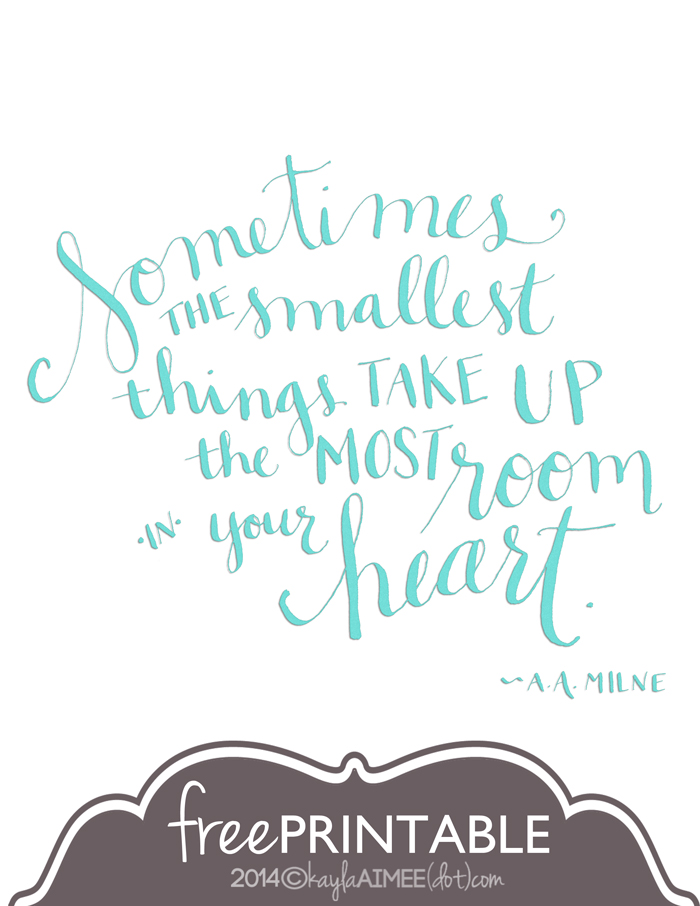 Sometimes
THE smallest
things TAKE UP
the MOST room
·IN· your
heart.
~A.A. MILNE
freePRINTABLE
2014©kaylaAIMEE(dot)com